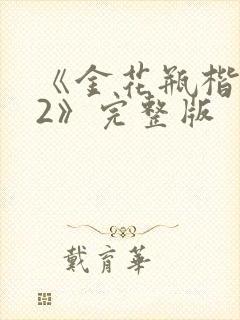 《金花瓶楷
2》完整版
戴育华